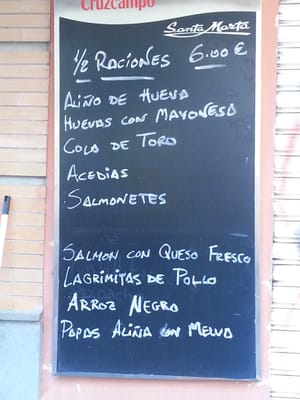 Cruzcampo
Santa Marta
1/2 RACIONES 6.00 €
ALIÑO DE HUEVA
HUEVAS CON MAYONESA
COLA DE TORO
ACEDIAS
SALMONETES
SALMON CON QUESO FRESCO
LAGRIMITAS DE POLLO
ARROZ NEGRO
PAPAS ALIÑA CON MELVA